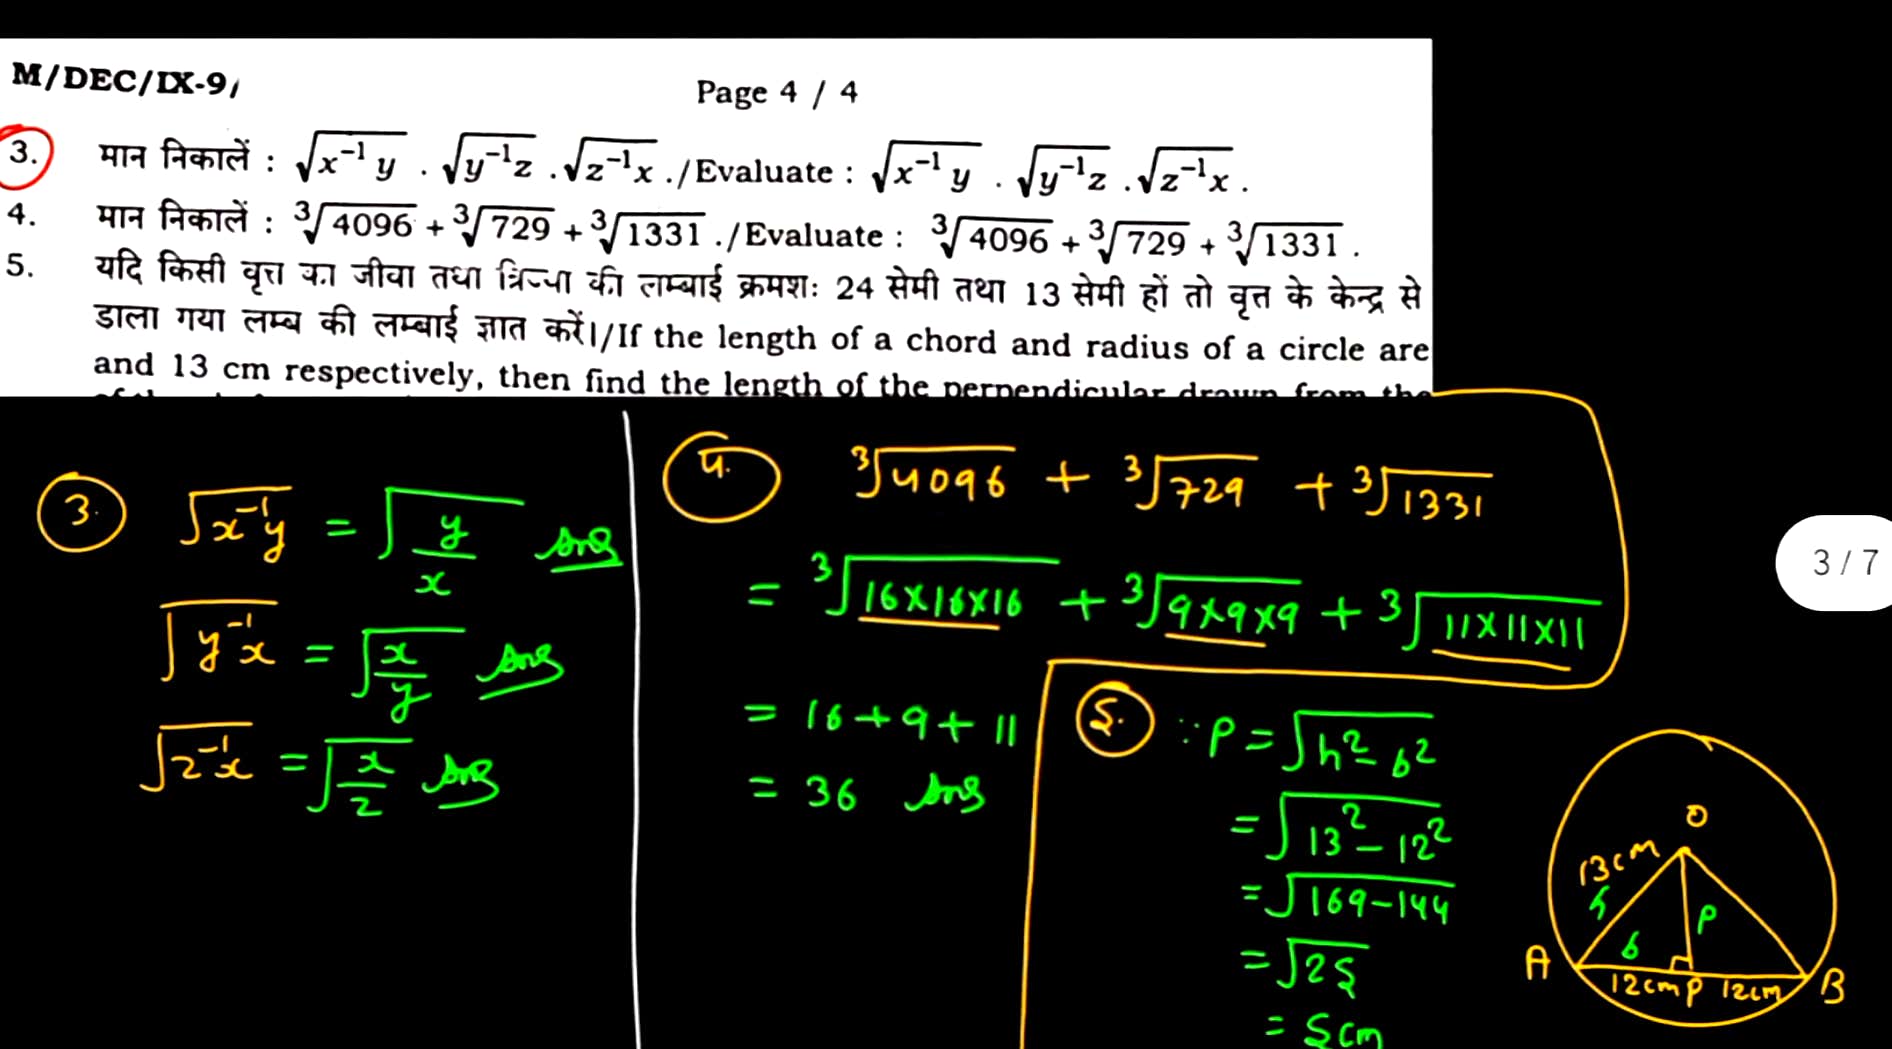 M/DEC/IX-9/
Page 4 / 4
3. मान निकालें : √x⁻¹y . √y⁻¹z . √z⁻¹x ./Evaluate : √x⁻¹y . √y⁻¹z . √z⁻¹x .
4. मान निकालें : ∛4096 + ∛729 + ∛1331 ./Evaluate : ∛4096 + ∛729 + ∛1331 .
5. यदि किसी वृत्त का जीवा तथा त्रिज्या की लम्बाई क्रमशः 24 सेमी तथा 13 सेमी हों तो वृत्त के केन्द्र से
डाला गया लम्ब की लम्बाई ज्ञात करें।/If the length of a chord and radius of a circle are
and 13 cm respectively, then find the length of the perpendicular drawn from the
3. √x⁻¹y = √y/x Ans
√y⁻¹x = √x/y Ans
√z⁻¹x = √x/z Ans
4. ∛4096 + ∛729 + ∛1331
= ∛16×16×16 + ∛9×9×9 + ∛11×11×11
= 16+9+11
= 36 Ans
5. ∵ P = √h²-b²
= √13²-12²
= √169-144
= √25
= 5cm
O
13cm
h
P
b
A
12cm P 12cm
B
3 / 7